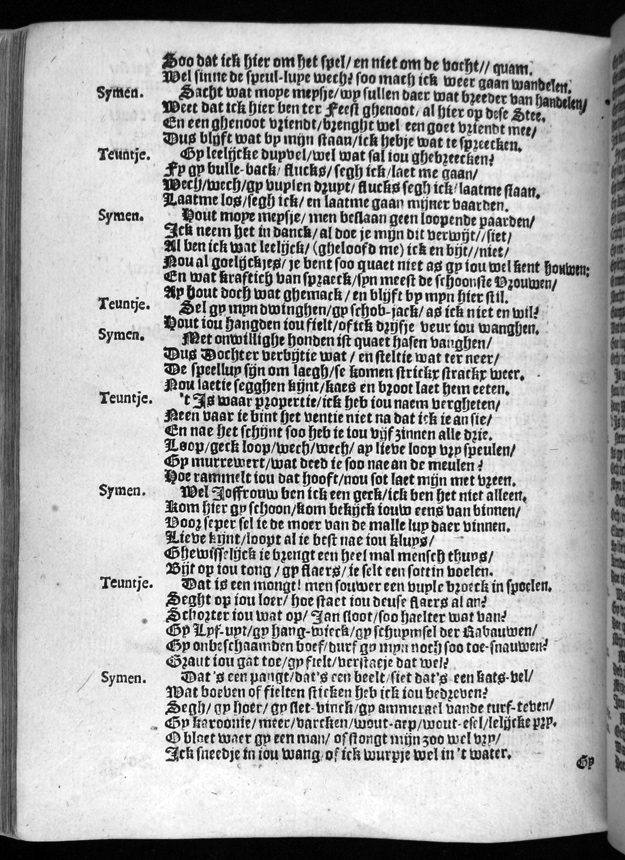 Soo dat ick hier om het spel/ en niet om de vocht// quam.
Wel sinne de speul-luye wech? soo mach ick weer gaan wandelen.
Symen. Sacht wat moye meysje/ wy sullen daer wat breeder van handelen/
Weet dat ick hier ben ter Feest ghenoot/ al hier op dese Stee.
En een ghenoot vriendt/ brenght wel een goet vriendt mee/
Dus blyft wat by mijn staan/ ick hebje wat te spreecken.
Teuntje. Gy leelijcke duyvel/ wel wat sal iou ghebreecken?
Fy gy bulle-back/ flucks/ segh ick/ laet me gaan/
Wech/ wech/ gy vuylen druyt/ flucks segh ick/ laatme staan.
Laatme los/ segh ick/ en laatme gaan mijner vaarden.
Symen. Hout moye meysje/ men beslaan geen loopende paarden/
Ick neem het in danck/ al doe je mijn dit verwijt// siet/
Al ben ick wat leelijck/ (gheloofd me) ick en bijt// niet/
Nou al goelijckjes/ je bent soo quaet niet as gy iou wel kent houwen;
En wat kraftich van spraeck/ syn meest de schoonste Vrouwen/
Ay hout doch wat ghemack/ en blijft by myn hier stil.
Teuntje. Sel gy myn dwinghen/ gy schob-jack/ as ick niet en wil?
Hout iou hangden iou fielt/ of ick dryfje veur iou wanghen.
Symen. Met onwillighe honden ist quaet hasen vanghen/
Dus Dochter verbijtie wat/ en steltie wat ter neer/
De speelluy sijn om laegh/ se komen strickx strackx weer.
Nou laetie segghen kijnt/ kaes en broot laet hem eeten.
Teuntje. 't Is waar propertie/ ick heb iou naem vergheten/
Neen vaar ie bint het ventie niet na dat ick ie an sie/
En nae het schijnt soo heb ie iou vijf zinnen alle drie.
Loop/ geck loop/ wech/ wech/ ay lieve loop vry speulen/
Gy murrewert/ wat deed ie soo nae an de meulen?
Hoe rammelt iou dat hooft/ nou sot laet mijn met vreen.
Symen. Wel Joffrouw ben ick een geck/ ick ben het niet alleen.
Kom hier gy schoon/ kom bekijck iouw eens van binnen/
Voor seper sel ie de moer van de malle luy daer vinnen.
Lieve kijnt/ loopt al ie best nae iou kluys/
Ghewisselijck ie brengt een heel mal mensch thuys/
Bijt op iou tong/ gy flaers/ ie selt een sottin voelen.
Teuntje. Dat is een mongt! men souwer een vuyle broeck in spoelen.
Seght op iou loer/ hoe staet iou deuse flaers al an?
Schorter iou wat op/ Jan sloot/ soo haelter wat van?
Gy Lyf-uyt/ gy hang-wieck/ gy schuymsel der Rabauwen/
Gy onbeschaamden boef/ durf gy myn noch soo toe-snauwen?
Graut iou gat toe/ gy fielt/ verstaeje dat wel?
Symen. Dat's een pangt/ dat's een beelt/ siet dat's een kats-vel/
Wat boeven of fielten sticken heb ick iou bedreven?
Segh/ gy hoer/ gy slet-vinck/ gy ammerael vande turf-teven/
Gy karoonie/ meer/ varcken/ wout-aep/ wout-esel/ lelijcke pry.
O bloet waer gy een man/ of stongt mijn zoo wel vry/
Ick sneedje in iou wang/ of ick wurpje wel in 't water.
Gy